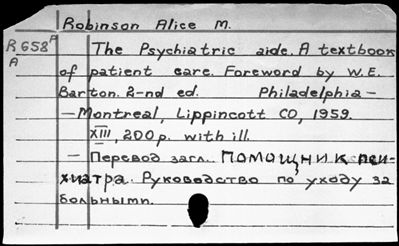 Robinson Alice M.
R658ᴾ The Psychiatric aide. A textbook
A of patient care. Foreword by W.E.
Barton. 2-nd ed. Philadelphia —
— Montreal, Lippincott CO, 1959.
XIII, 200 p. with ill.
— Перевод загл.. ПОМОЩНИК пси-
хиатра. Руководство по уходу за
больными.